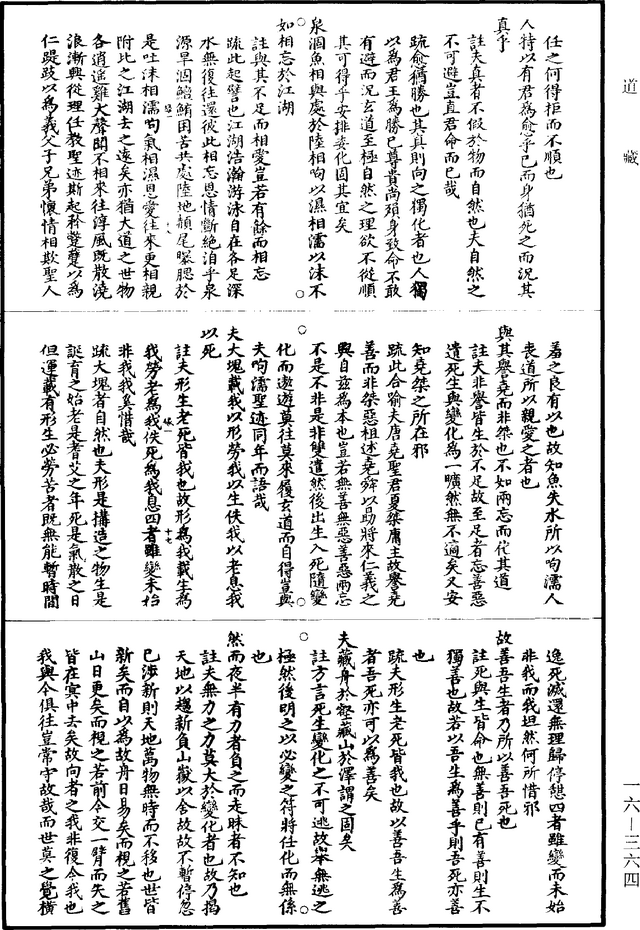 道藏
任之何得拒而不順也
人特以有君爲愈乎已而身猶死之而況其
真乎
註夫真者不假於物而自然也夫自然之
不可避豈直君命而已哉
疏愈猶勝也其真則向之獨化者也人獨
以爲君王爲勝已尊貴尚殞身致命不敢
有避而況玄道至極自然之理欲不從順
其可得乎安排委化固其宜矣
泉涸魚相與處於陸相呴以濕相濡以沫不
如相忘於江湖
註與其不足而相愛豈若有餘而相忘
疏此起譬也江湖浩瀚游泳自在各足深
水無復往還彼此相忘恩情斷絶洎乎泉
源旱涸鱣鮪困苦共處陸地頳尾曝腮於
是吐沫相濡呴氣相濕恩愛往來更相親
附比之江湖去之遠矣亦猶大道之世物
各逍遥雞犬聲聞不相來往淳風既散澆
浪漸興從理任教聖迹斯起矜蹩躠以爲
仁踶跂以爲義父子兄弟懷情相欺聖人
羞之良有以也故知魚失水所以呴濡人
喪道所以親愛之者也
與其譽堯而非桀也不如兩忘而化其道
註夫非譽皆生於不足故至足者忘善惡
遺死生與變化爲一曠然無不適矣又安
知堯桀之所在邪
疏此合喻夫唐堯聖君夏桀庸主故譽堯
善而非桀惡祖述堯舜以勗將來仁義之
興自兹爲本也豈若無善無惡善惡兩忘
不是不非是非雙遣然後出生入死隨變
化而遨遊莫往莫來履玄道而自得豈與
夫呴濡聖迹同年而語哉
夫大塊載我以形勞我以生佚我以老息我
以死
註夫形生老死皆我也故形爲我載生爲
我勞老爲我佚死爲我息四者雖變未始
非我我奚惜哉
疏大塊者自然也夫形是搆造之物生是
誕育之始老是耆艾之年死是氣散之日
但運載有形生必勞苦者既無能暫時閒
逸死滅還無理歸停憩四者雖變而未始
非我而我坦然何所惜邪
故善吾生者乃所以善吾死也
註死與生皆命也無善則已有善則生不
獨善也故若以吾生爲善乎則吾死亦善
也
疏夫形生老死皆我也故以善吾生爲善
者吾死亦可以爲善矣
夫藏舟於壑藏山於澤謂之固矣
註方言死生變化之不可逃故舉無逃之
極然後明之以必變之符將任化而無係
也
然而夜半有力者負之而走昧者不知也
註夫無力之力莫大於變化者也故乃揭
天地以趨新負山嶽以舍故故不暫停忽
已涉新則天地萬物無時而不移也世皆
新矣而自以爲故舟日易矣而視之若舊
山日更矣而視之若前今交一臂而失之
皆在冥中去矣故向者之我非復今我也
我與今俱往豈常守故哉而世莫之覺橫
一六—三六四